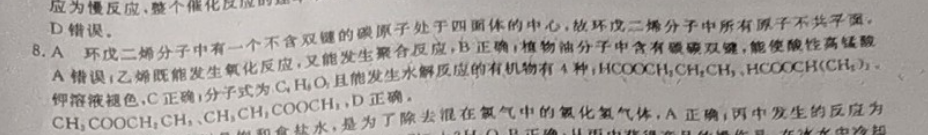 应为慢反应、整个催化反应的
D 错误。
8. A　环戊二烯分子中有一个不含双键的碳原子处于四面体的中心,故环戊二烯分子中所有原子不共平面,
A 错误;乙烯既能发生氧化反应,又能发生聚合反应,B 正确;植物油分子中含有碳碳双键,能使酸性高锰酸
钾溶液褪色,C 正确;分子式为 C₄H₈O₂ 且能发生水解反应的有机物有 4 种:HCOOCH₂CH₂CH₃、HCOOCH(CH₃)₂、
CH₃COOCH₂CH₃、CH₃CH₂COOCH₃,D 正确。
和食盐水,是为了除去混在氯气中的氯化氢气体,A 正确;丙中发生的反应为